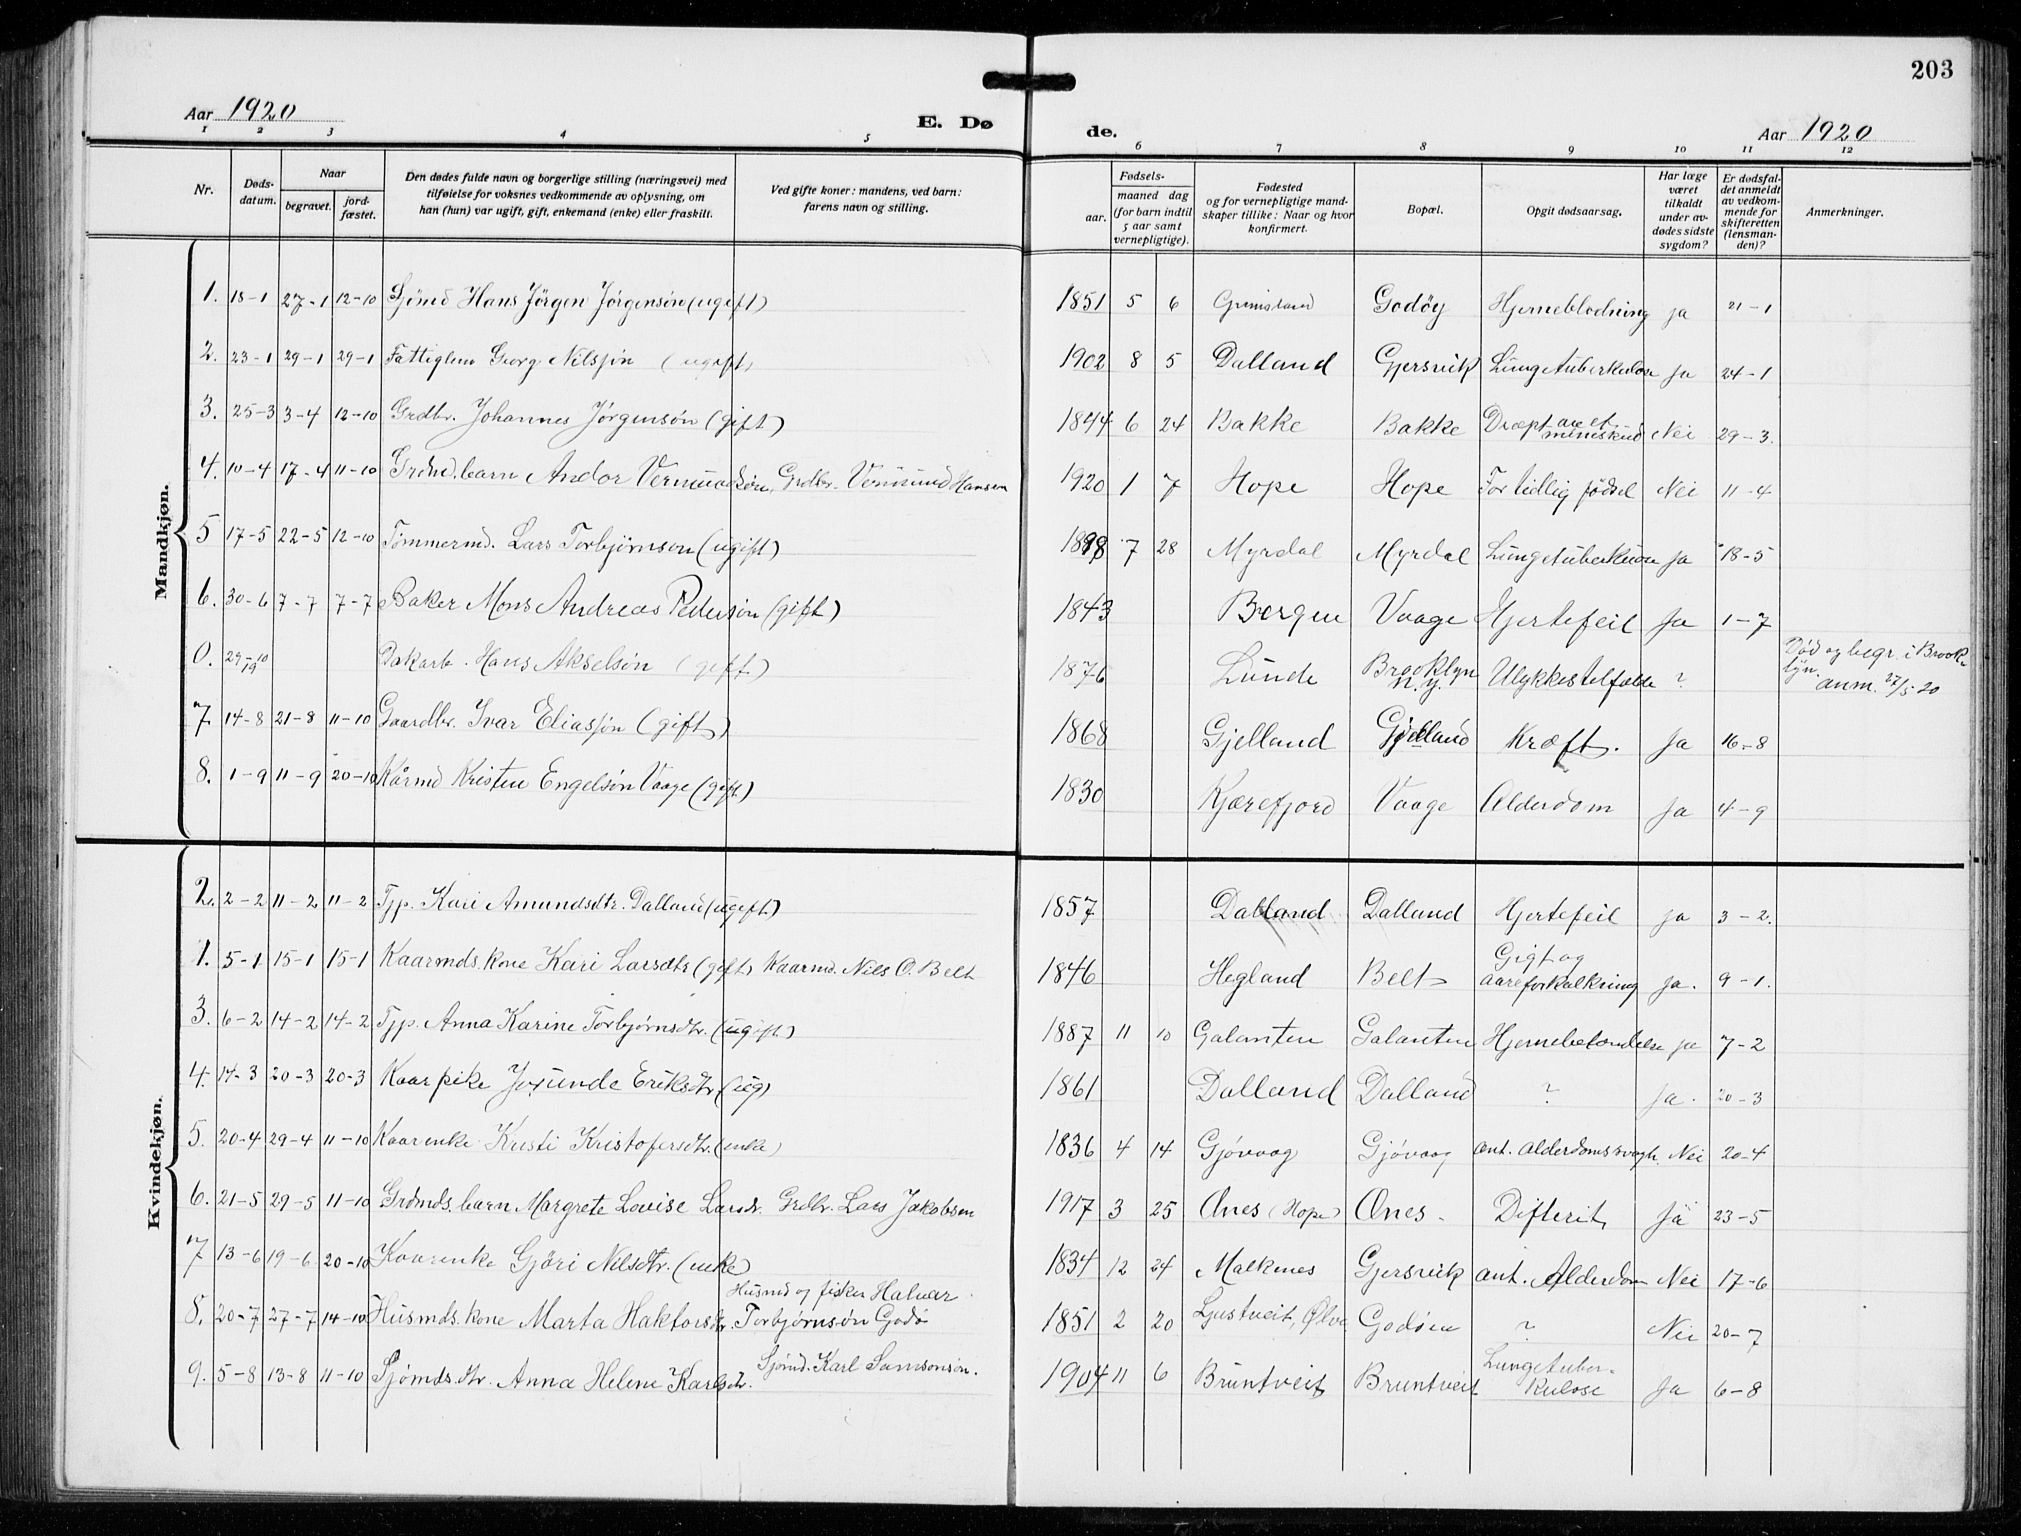 203
Aar 1920
E. Dø
de.
Aar 1920
1 2 3 4 5 6 7 8 9 10 11 12
Nr.
Døds-
datum.
Naar
begravet.
jord-
fæstet.
Den dødes fulde navn og borgerlige stilling (næringsvei) med
tilføielse for voksnes vedkommende av oplysning, om
han (hun) var ugift, gift, enkemand (enke) eller fraskilt.
Ved gifte koner: mandens, ved barn:
farens navn og stilling.
Fødsels-
aar.
maaned dag
(for barn indtil
5 aar samt
vernepligtige).
Fødested
og for vernepligtige mand-
skaper tillike: Naar og hvor
konfirmert.
Bopæl.
Opgit dødsaarsag.
Har læge
været
tilkaldt
under av-
dødes sidste
sygdom?
Er dødsfal-
det anmeldt
av vedkom-
mende for
skifteretten
(lensman-
den)?
Anmerkninger.
Mandkjøn.
1. 18-1 27-1 12-10 Sjömd Hans Jörgen Jörgensön (ugift) 1851 5 6 Grimsland Godöy Hjerneblodning ja 21-1
2. 23-1 29-1 29-1 Fattiglem Georg Nilssön (ugift) 1902 8 5 Dalland Gjersvik Lungetuberkulose Ja 24-1
3. 25-3 3-4 12-10 Grdbr. Johannes Jörgensön (gift) 1844 6 24 Bakke Bakke Dræpt av et mineskud Nei 29-3.
4. 10-4 17-4 11-10 Grdmd. barn Andor Vermundsön, Grdbr. Vermund Hansen 1920 1 7 Hope Hope For tidlig födsel Nei 11-4
5 17-5 22-5 12-10 Tömmermd. Lars Torbjörnson (ugift) 1898 7 28 Myrdal Myrdal Lungetuberkulose Ja 18-5
6. 30-6 7-7 7-7 Baker Mons Andreas Pedersön (gift) 1843 Bergen Vaage Hjertefeil Ja 1-7
0. 29-10 19 Dokarb. Hans Akselsön (gift) 1876 Lunde Brooklyn N.Y. Ulykkestilfælde ? Död og begr. i Brook-
lyn. anm. 27/5-20
7 14-8 21-8 11-10 Gaardbr. Ivar Eliassön (gift) 1868 Gjelland Gjelland Kræft. Ja 16-8
8. 1-9 11-9 20-10 Kårmd Kristen Engelsön Vaage (gift) 1830 Kjærefjord Vaage Alderdom Ja 4-9
Kvindekjøn.
2. 2-2 11-2 11-2 Tjp. Kari Amundsdtr. Dalland (ugift) 1857 Dalland Dalland Hjertefeil ja 3-2.
1. 5-1 15-1 15-1 Kaarmds. kone Kari Larsdtr (gift) Kaarmd. Nils O. Belt 1846 Hegland Belt Gigt og
aareforkalkning ja. 9-1.
3. 6-2 14-2 14-2 Tjp. Anna Karine Torbjørnsdtr. (ugift) 1887 11 10 Galanten Galanten Hjernebetændelse ja 7-2
4. 14-3 20-3 20-3 Kaarpike Eriksdtr (ug) 1861 Dalland Dalland ? Ja. 20-3
5. 20-4 29-4 11-10 Kaarenke Kristi Kristofersdtr. (enke) 1836 4 14 Gjövaag Gjövaag ant. Alderdomssvagh. Nei 20-4
6. 21-5 29-5 11-10 Grdmds. barn Margrete Lovise Larsdr. Grdbr. Lars Jakobsen 1917 3 25 Ones (Hope) Ones. Difterit Ja 23-5
7 13-6 19-6 20-10 Kaarenke Gjöri Nilsdtr. (enke) 1834 12 24 Malkenes Gjersvik ant. Alderdom Nei 17-6
8. 20-7 27-7 14-10 Husmds. kone Marta Haktorsdtr. Husmd og fisker Halvar
Torbjørnsön Godö 1851 2 20 Ljustveit, Ølve Godöen ? Nei 20-7
9. 5-8 13-8 11-10 Sjömds. dtr. Anna Helene Karlsdtr. Sjömd. Karl Samsonsön. 1904 11 6 Bruntveit Bruntveit Lungetuber-
kulose Ja 6-8